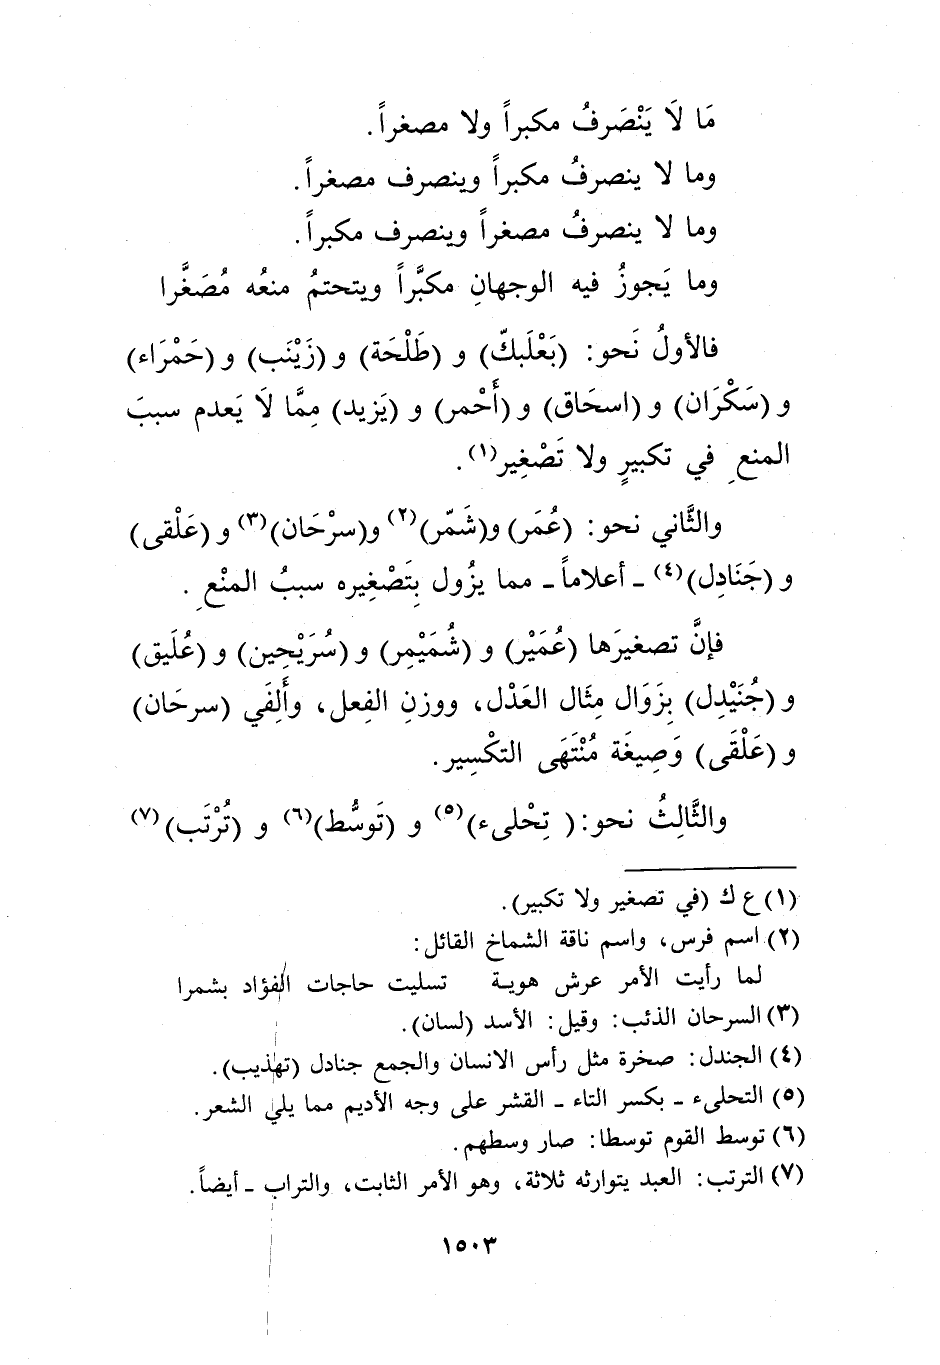 مَا لاَ يَنْصَرفُ مكبراً ولا مصغراً.
وما لا ينصرفُ مكبراً وينصرف مصغراً.
وما لا ينصرفُ مصغراً وينصرف مكبراً.
وما يَجوزُ فيه الوجهانِ مكبَّراً ويتحتمُ منعُه مُصَغَّرا
فالأولُ نَحو: (بَعْلَبكّ) و (طَلْحَة) و (زَيْنَب) و (حَمْرَاء)
و (سَكْرَان) و (اسحَاق) و (أَحْمر) و (يَزيد) مِمَّا لَا يَعدم سببَ
المنعِ في تكبيرٍ ولا تَصْغِير(١).
والثَّاني نحو: (عُمَر) و(شَمّر)(٢) و(سرْحَان)(٣) و (عَلْقى)
و (جَنَادِل)(٤) ـ أعلاماً ـ مما يزُول بِتَصْغِيره سببُ المنْعِ.
فإنَّ تصغيرَها (عُمَيْر) و (شُمَيْمِر) و (سُرَيْحِين) و (عُلَيق)
و (جُنَيْدِل) بِزَوَال مِثَال العَدْل، ووزنِ الفِعل، وأَلِفَي (سرحَان)
و (عَلْقَى) وَصِيغَة مُنْتَهَى التكْسِير.
والثَّالِثُ نحو: ( تِحْلىء)(٥) و (تَوسُّط)(٦) و (تُرْتَب)(٧)
(١) ع ك (في تصغير ولا تكبير).
(٢) اسم فرس، واسم ناقة الشماخ القائل:
لما رأيت الأمر عرش هوية تسليت حاجات الفؤاد بشمرا
(٣) السرحان الذئب: وقيل: الأسد (لسان).
(٤) الجندل: صخرة مثل رأس الانسان والجمع جنادل (تهذيب).
(٥) التحلىء ـ بكسر التاء ـ القشر على وجه الأديم مما يلي الشعر.
(٦) توسط القوم توسطا: صار وسطهم.
(٧) الترتب: العبد يتوارثه ثلاثة، وهو الأمر الثابت، والتراب ـ أيضاً.
١٥٠٣